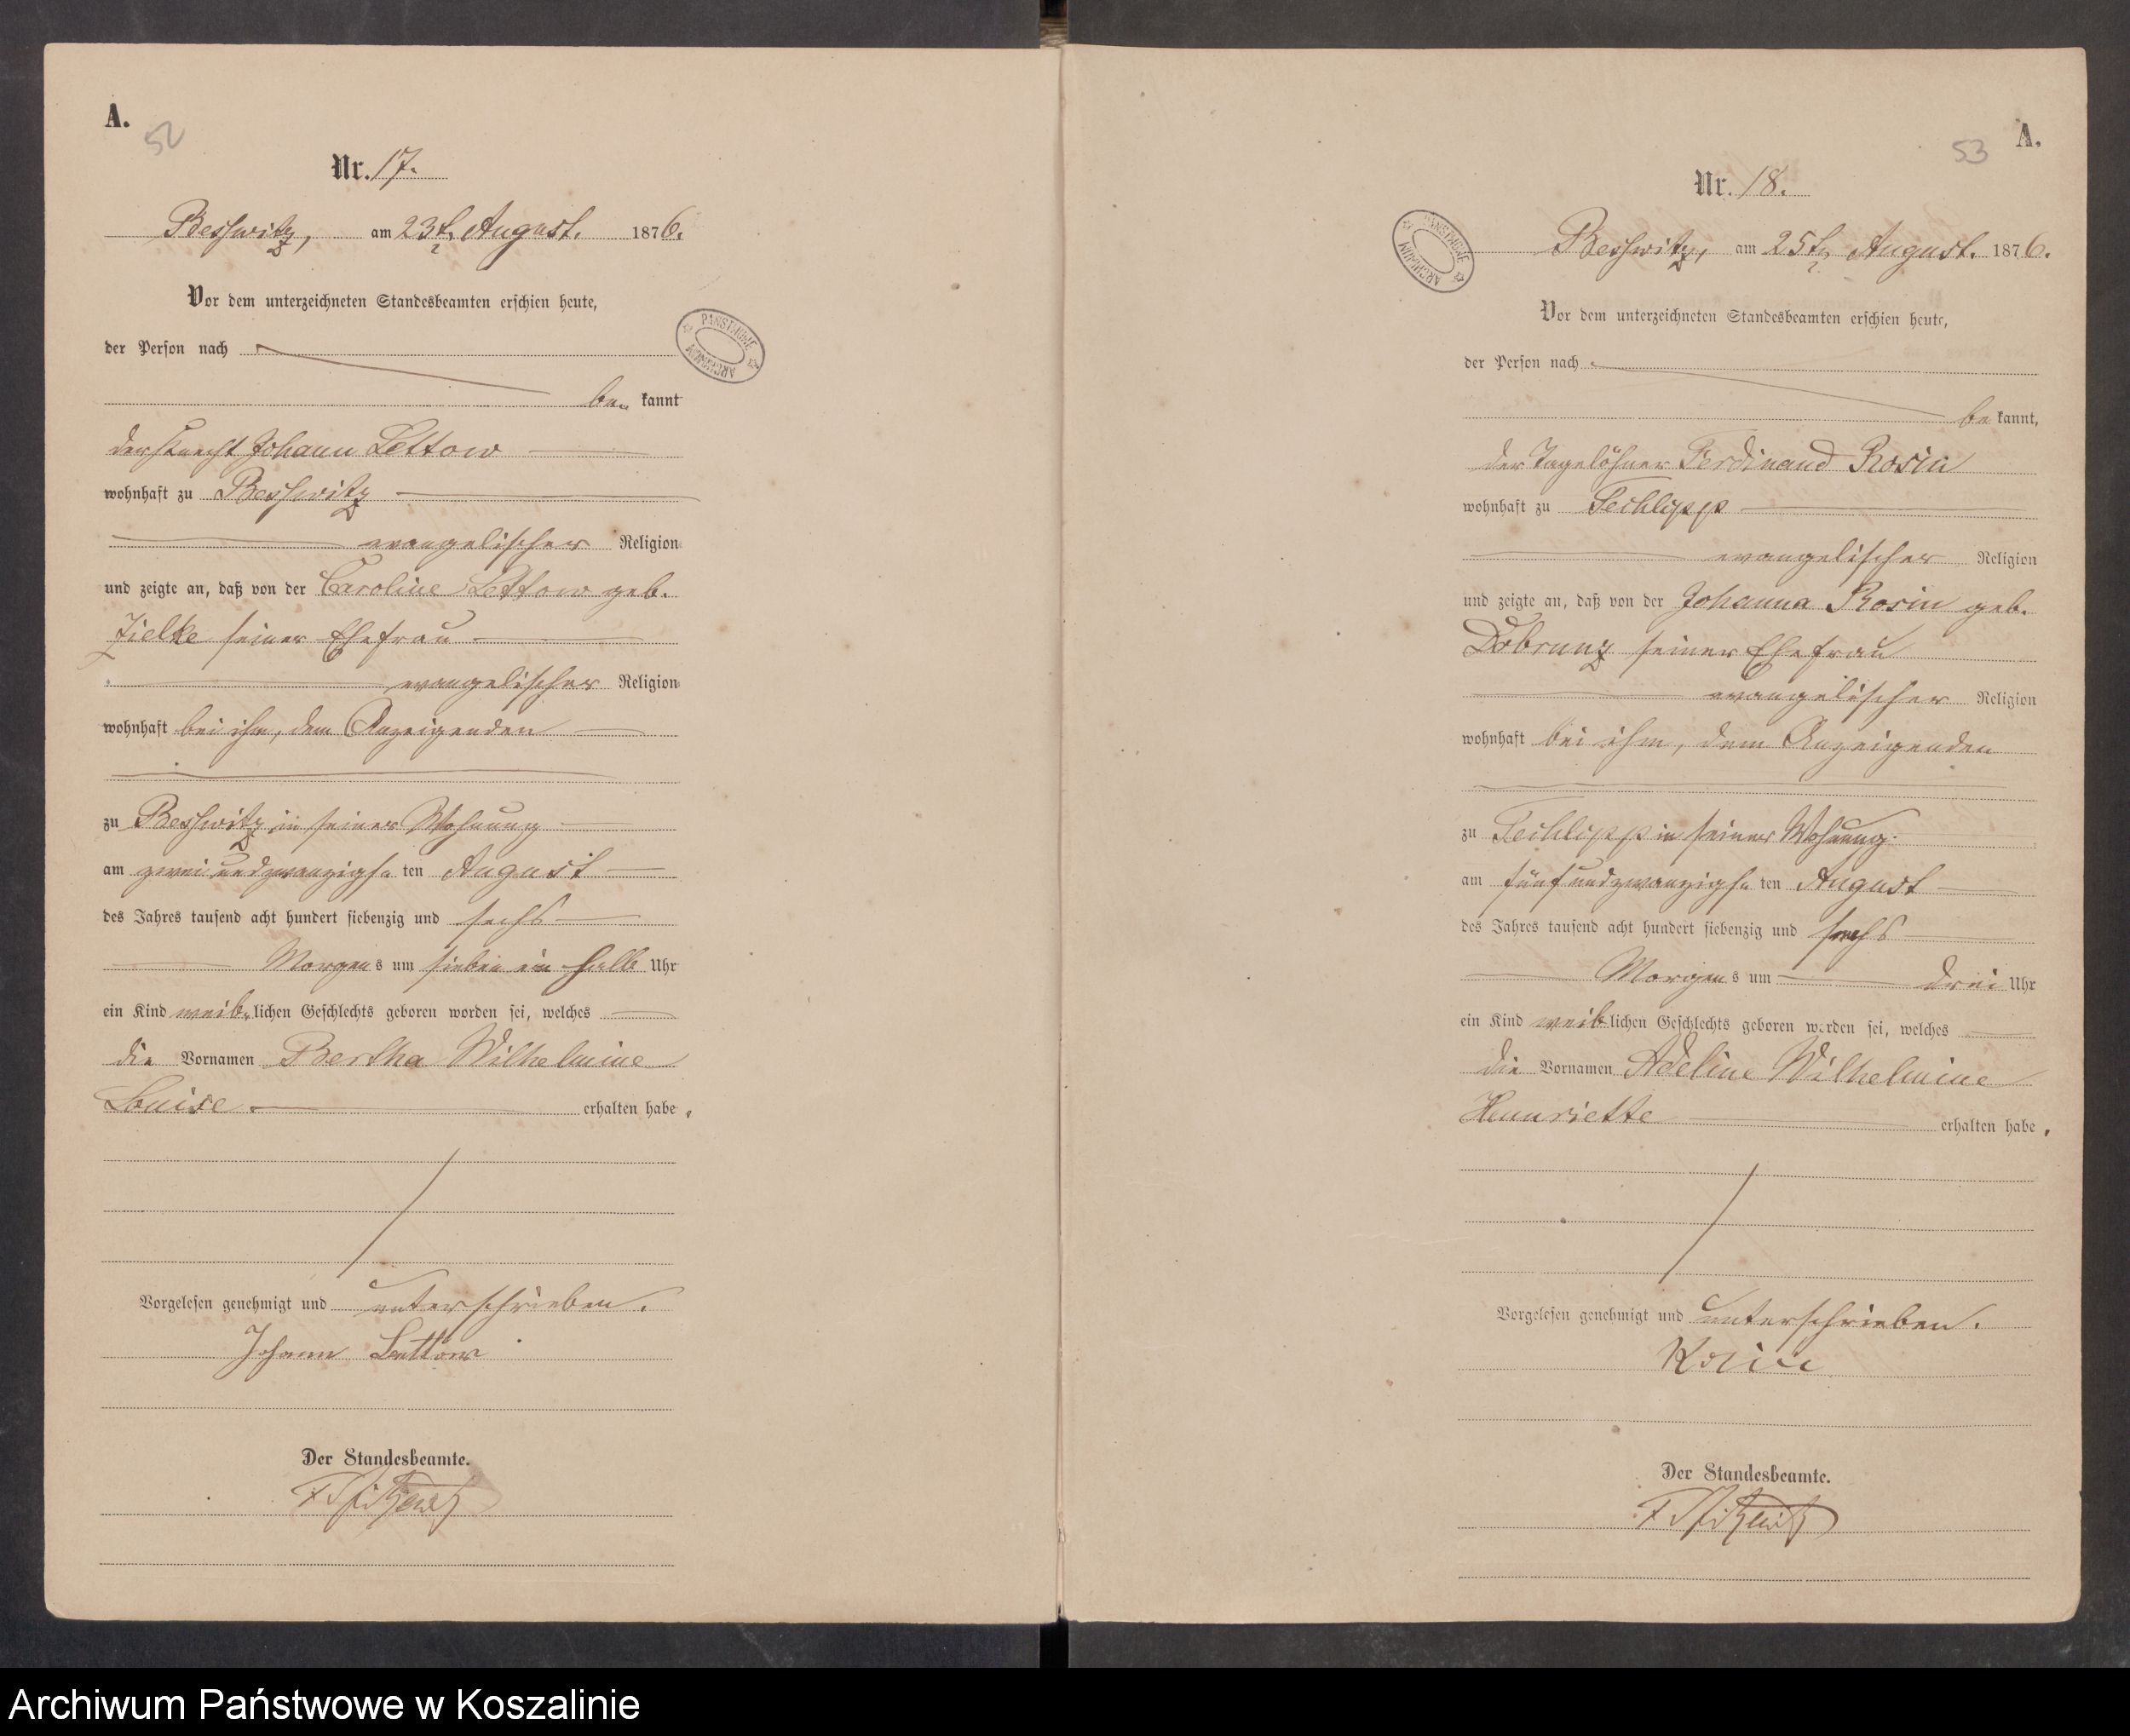 A.
52
Nr. 17.
Beßwitz, am 23t. August. 1876.
Vor dem unterzeichneten Standesbeamten erschien heute,
der Person nach
be kannt
der Knecht Johann Lettow
wohnhaft zu Beßwitz
evangelischer Religion
und zeigte an, daß von der Caroline Lettow geb.
Zielke seiner Ehefrau
evangelischer Religion
wohnhaft bei ihm, dem Anzeigenden
zu Beßwitz in seiner Wohnung
am zwei und zwanzigsten August
des Jahres tausend acht hundert siebenzig und sechs
Morgens um sieben ein halb Uhr
ein Kind weiblichen Geschlechts geboren worden sei, welches
die Vornamen Bertha Wilhelmine
Louise erhalten habe.
Vorgelesen genehmigt und unterschrieben.
Johann Lettow
Der Standesbeamte.
PAŃSTWOWE ARCHIWUM
A.
53
Nr. 18.
Beßwitz, am 25t. August. 1876.
Vor dem unterzeichneten Standesbeamten erschien heute,
der Person nach
be kannt,
der Tagelöhner Ferdinand Rosin
wohnhaft zu Techlipp
evangelischer Religion
und zeigte an, daß von der Johanna Rosin geb.
Dobrunz seiner Ehefrau
evangelischer Religion
wohnhaft bei ihm, dem Anzeigenden
zu Techlipp in seiner Wohnung.
am fünf und zwanzigsten August
des Jahres tausend acht hundert siebenzig und sechs
Morgens um drei Uhr
ein Kind weiblichen Geschlechts geboren worden sei, welches
die Vornamen Adeline Wilhelmine
Hennriette erhalten habe.
Vorgelesen genehmigt und unterschrieben.
Rosin
Der Standesbeamte.
PAŃSTWOWE ARCHIWUM
Archiwum Państwowe w Koszalinie